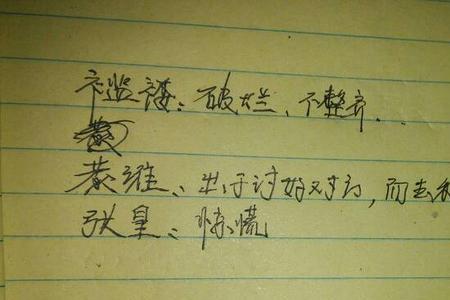 褴褛：破烂、不整齐...
恭维：出于讨好对方，而去
张皇：惊慌